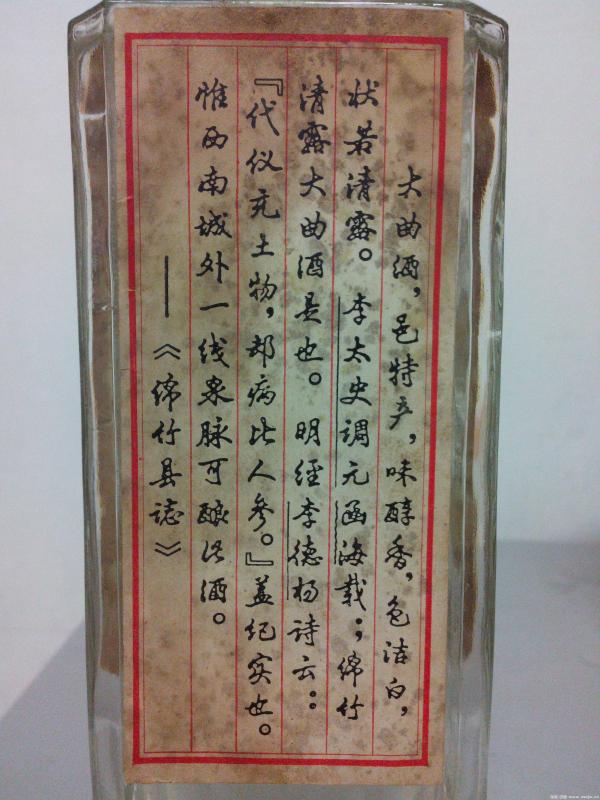 大曲酒，邑特产，味醇香，色洁白，
状若清露。李太史调元函海载；绵竹
清露大曲酒是也。明经李德扬诗云：
『代仪充土物，却病比人参。』盖纪实也。
惟西南城外一线泉脉可酿此酒。
——《绵竹县誌》